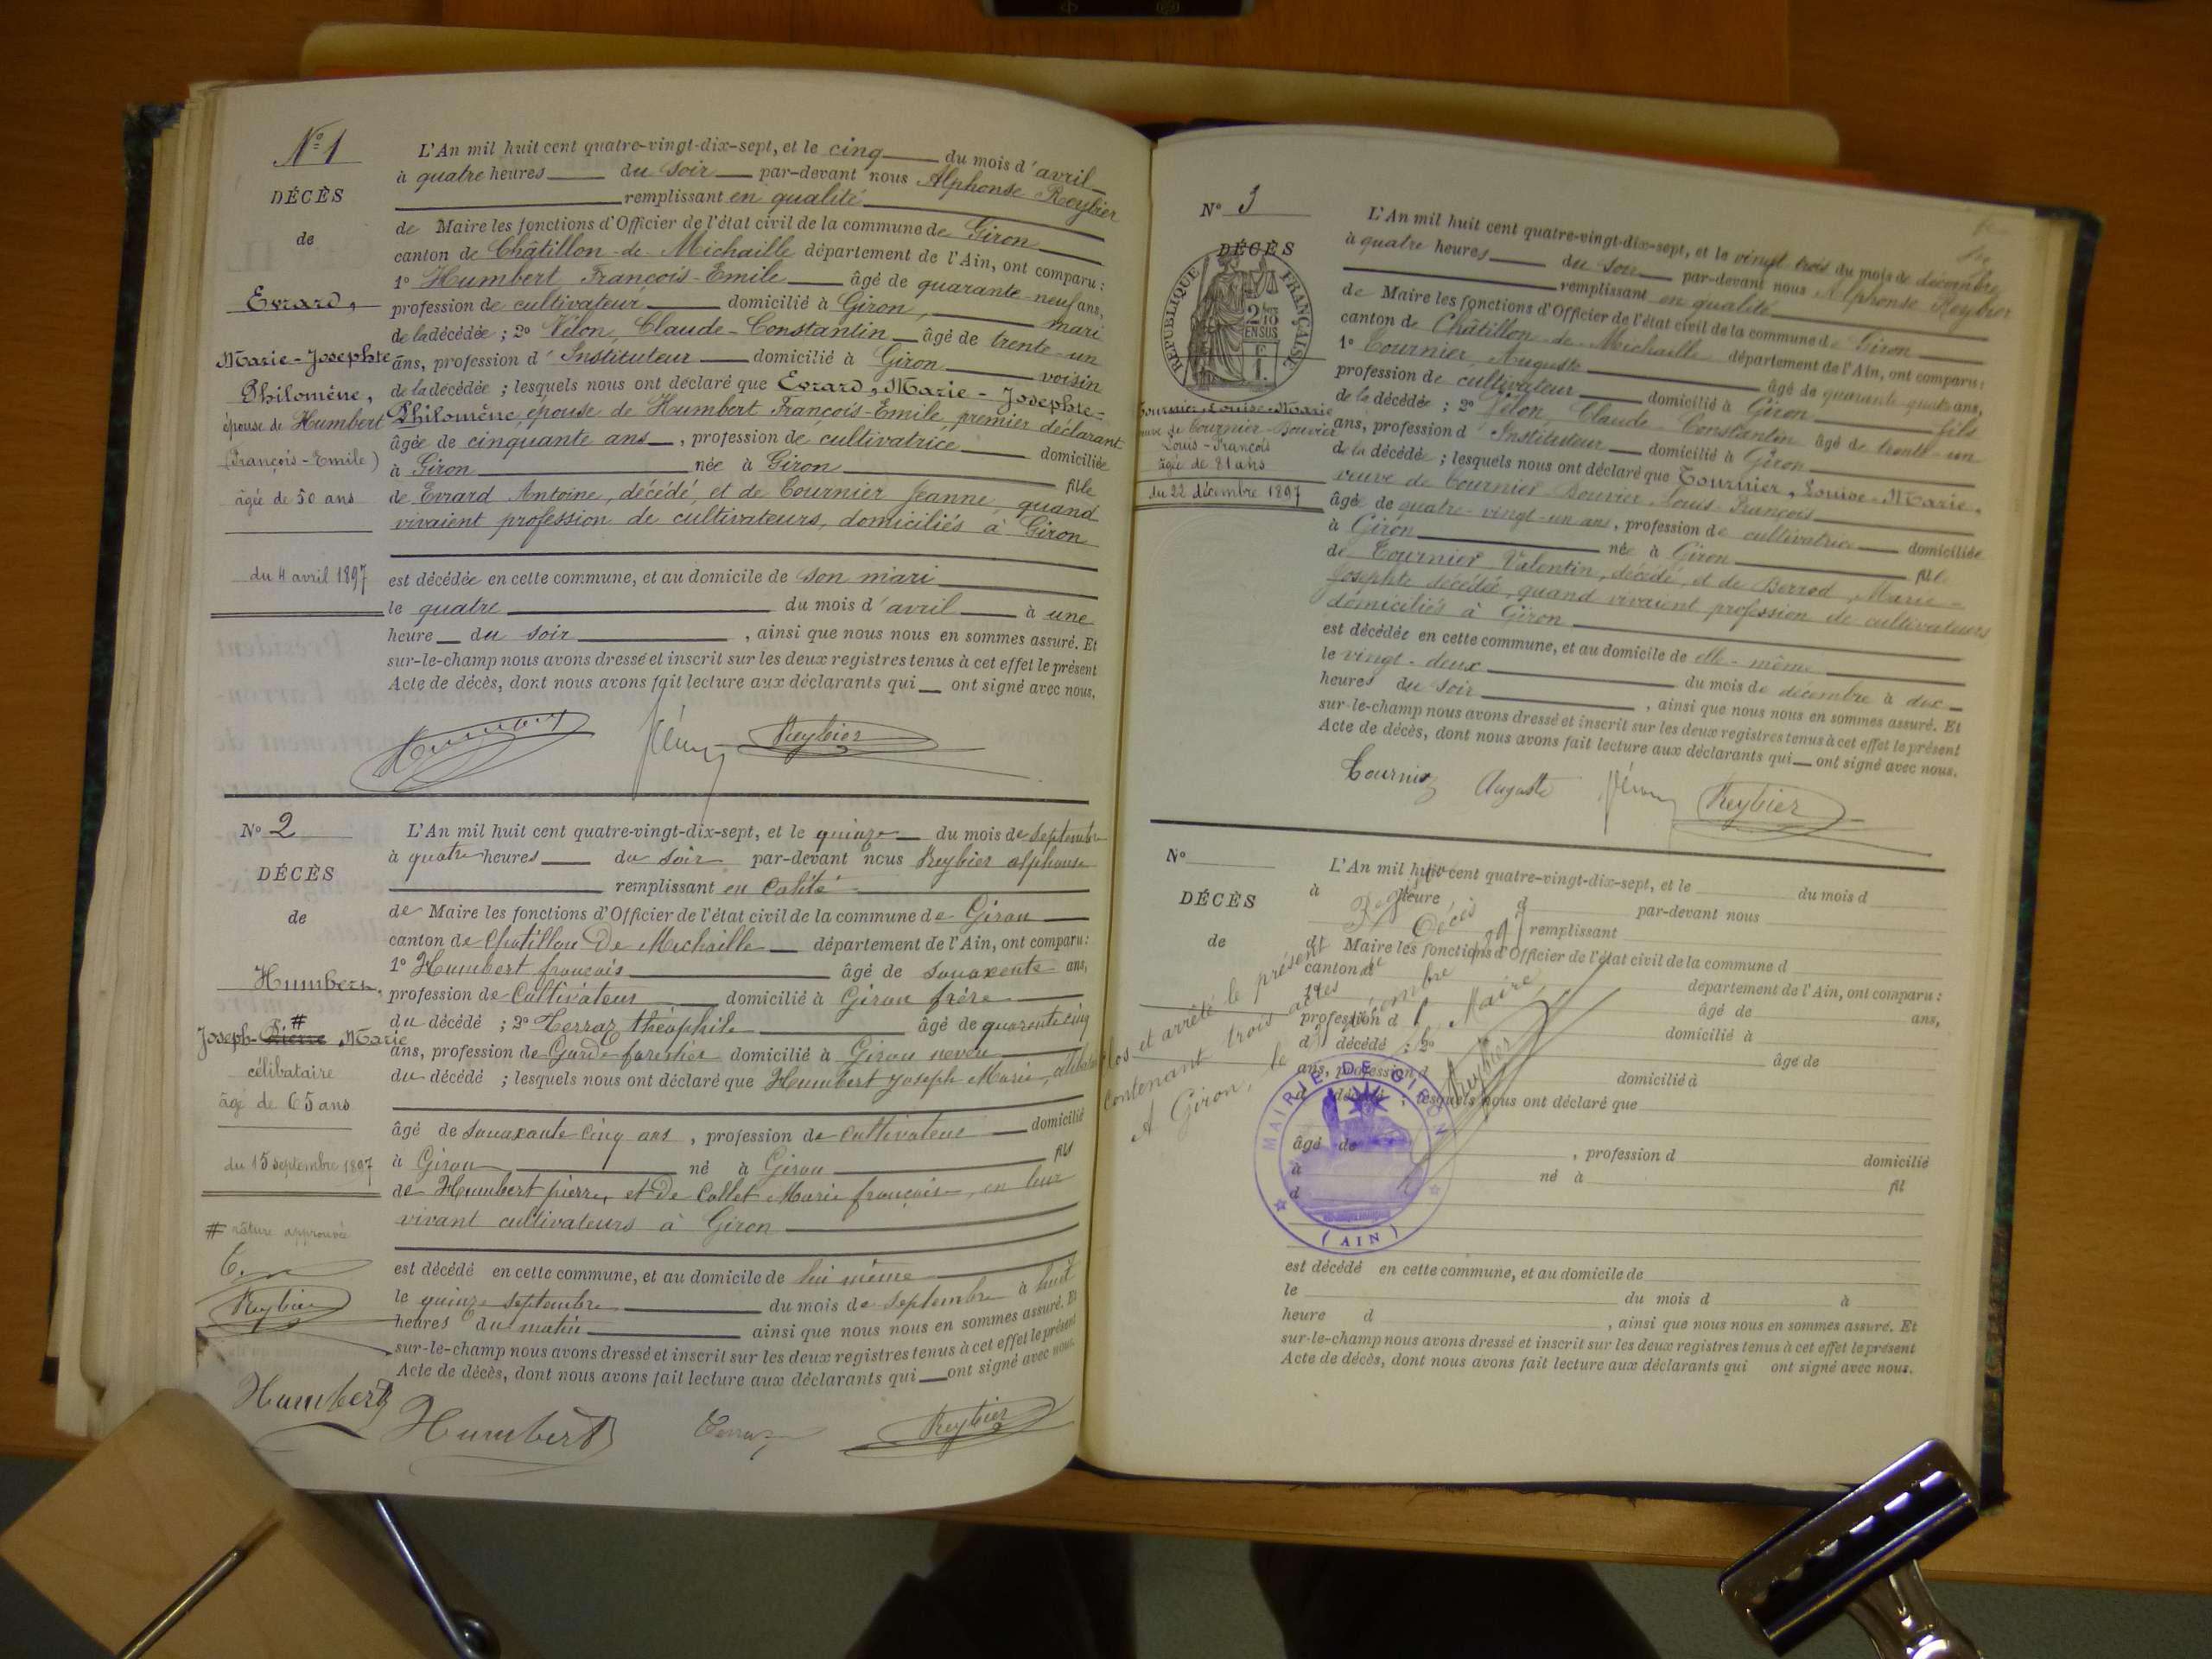 Nº 1
DÉCÈS
de
Evrard,
Marie-Josephte
Philomène,
épouse de Humbert
(François-Emile)
âgée de 50 ans
du 4 avril 1897
L'An mil huit cent quatre-vingt-dix-sept, et le cinq du mois d'avril
à quatre heures du soir par-devant nous Alphonse Reybier
remplissant en qualité
de Maire les fonctions d'Officier de l'état civil de la commune de Giron
canton de Châtillon-de-Michaille département de l'Ain, ont comparu :
1º Humbert, François-Emile âgé de quarante-neuf ans,
profession de cultivateur domicilié à Giron, mari
de la décédée ; 2º Claude-Constantin âgé de trente-un
ans, profession d'Instituteur domicilié à Giron voisin
de la décédée ; lesquels nous ont déclaré que Evrard, Marie-Josephte-
Philomène, épouse de Humbert François-Emile, premier déclarant
âgée de cinquante ans, profession de cultivatrice domiciliée
à Giron née à Giron fille
de Evrard Antoine, décédé, et de Tournier Jeanne, quand
vivaient profession de cultivateurs, domiciliés à Giron
est décédée en cette commune, et au domicile de son mari
le quatre du mois d'avril à une
heure du soir, ainsi que nous nous en sommes assuré. Et
sur-le-champ nous avons dressé et inscrit sur les deux registres tenus à cet effet le présent
Acte de décès, dont nous avons fait lecture aux déclarants qui ont signé avec nous.
Humbert Reybier
Nº 2
DÉCÈS
de
Humbert,
Joseph-Pierre Marie
célibataire
âgé de 65 ans
du 15 septembre 1897
# rature approuvée
Reybier
L'An mil huit cent quatre-vingt-dix-sept, et le quinze du mois de septembre
à quatre heures du soir par-devant nous Reybier alphonse
remplissant en calité
de Maire les fonctions d'Officier de l'état civil de la commune de Giron
canton de Chatillon De Michaille département de l'Ain, ont comparu :
1º Humbert françois âgé de souaxente ans,
profession de Cultivateur domicilié à Giron frére
du décédé ; 2º théophile âgé de quarente cinq
ans, profession de Garde forestier domicilié à Giron neveu
du décédé ; lesquels nous ont déclaré que Humbert Joseph Marie, célibataire
âgé de souaxante cinq ans, profession de cultivateur domicilié
à Giron né à Giron fils
de Humbert pierre, et De Collet Marie françoise, en leur
vivant cultivateurs à Giron
est décédé en cette commune, et au domicile de lui même
le quinze septembre du mois de septembre à huit
heures du matin ainsi que nous nous en sommes assuré. Et
sur-le-champ nous avons dressé et inscrit sur les deux registres tenus à cet effet le présent
Acte de décès, dont nous avons fait lecture aux déclarants qui ont signé avec nous.
Humbert Humbert Reybier
Nº 3
DÉCÈS
RÉPUBLIQUE FRANÇAISE
2/10 EN SUS
Tournier, Louise-Marie
veuve de Tournier-Bouvier
Louis-François
âgée de 81 ans
du 22 décembre 1897
L'An mil huit cent quatre-vingt-dix-sept, et le vingt trois du mois de décembre
à quatre heures du soir par-devant nous Alphonse Reybier
remplissant en qualité
de Maire les fonctions d'Officier de l'état civil de la commune de Giron
canton de Châtillon-de-Michaille département de l'Ain, ont comparu :
1º Tournier, Auguste âgé de quarante-quatre ans,
profession de cultivateur domicilié à Giron fils
de la décédée ; 2º Claude-Constantin âgé de trente-un
ans, profession d'Instituteur domicilié à Giron
de la décédée ; lesquels nous ont déclaré que Tournier, Louise-Marie,
veuve de Tournier-Bouvier, Louis-François
âgée de quatre-vingt-un ans, profession de cultivatrice domiciliée
à Giron née à Giron fille
de Tournier Valentin, décédé, et de Berrod, Marie-
Josephte décédée, quand vivaient profession de cultivateurs
domiciliés à Giron
est décédée en cette commune, et au domicile de elle-même
le vingt-deux du mois de décembre à dix
heures du soir, ainsi que nous nous en sommes assuré. Et
sur-le-champ nous avons dressé et inscrit sur les deux registres tenus à cet effet le présent
Acte de décès, dont nous avons fait lecture aux déclarants qui ont signé avec nous.
Tournier Auguste Reybier
Nº
DÉCÈS
de
L'An mil huit cent quatre-vingt-dix-sept, et le du mois d
à heure d par-devant nous
remplissant
d Maire les fonctions d'Officier de l'état civil de la commune d
canton d département de l'Ain, ont comparu :
1º âgé de ans,
profession d domicilié à
d décédé ; 2º âgé de
ans, profession d domicilié à
d décédé ; lesquels nous ont déclaré que
âgé de, profession d domicilié
à né à fil
d
est décédé en cette commune, et au domicile de
le du mois d à
heure d, ainsi que nous nous en sommes assuré. Et
sur-le-champ nous avons dressé et inscrit sur les deux registres tenus à cet effet le présent
Acte de décès, dont nous avons fait lecture aux déclarants qui ont signé avec nous.
Clos et arrêté le présent
contenant trois actes
A Giron, le 31 décembre
Maire,
Reybier
MAIRIE DE GIRON
(AIN)